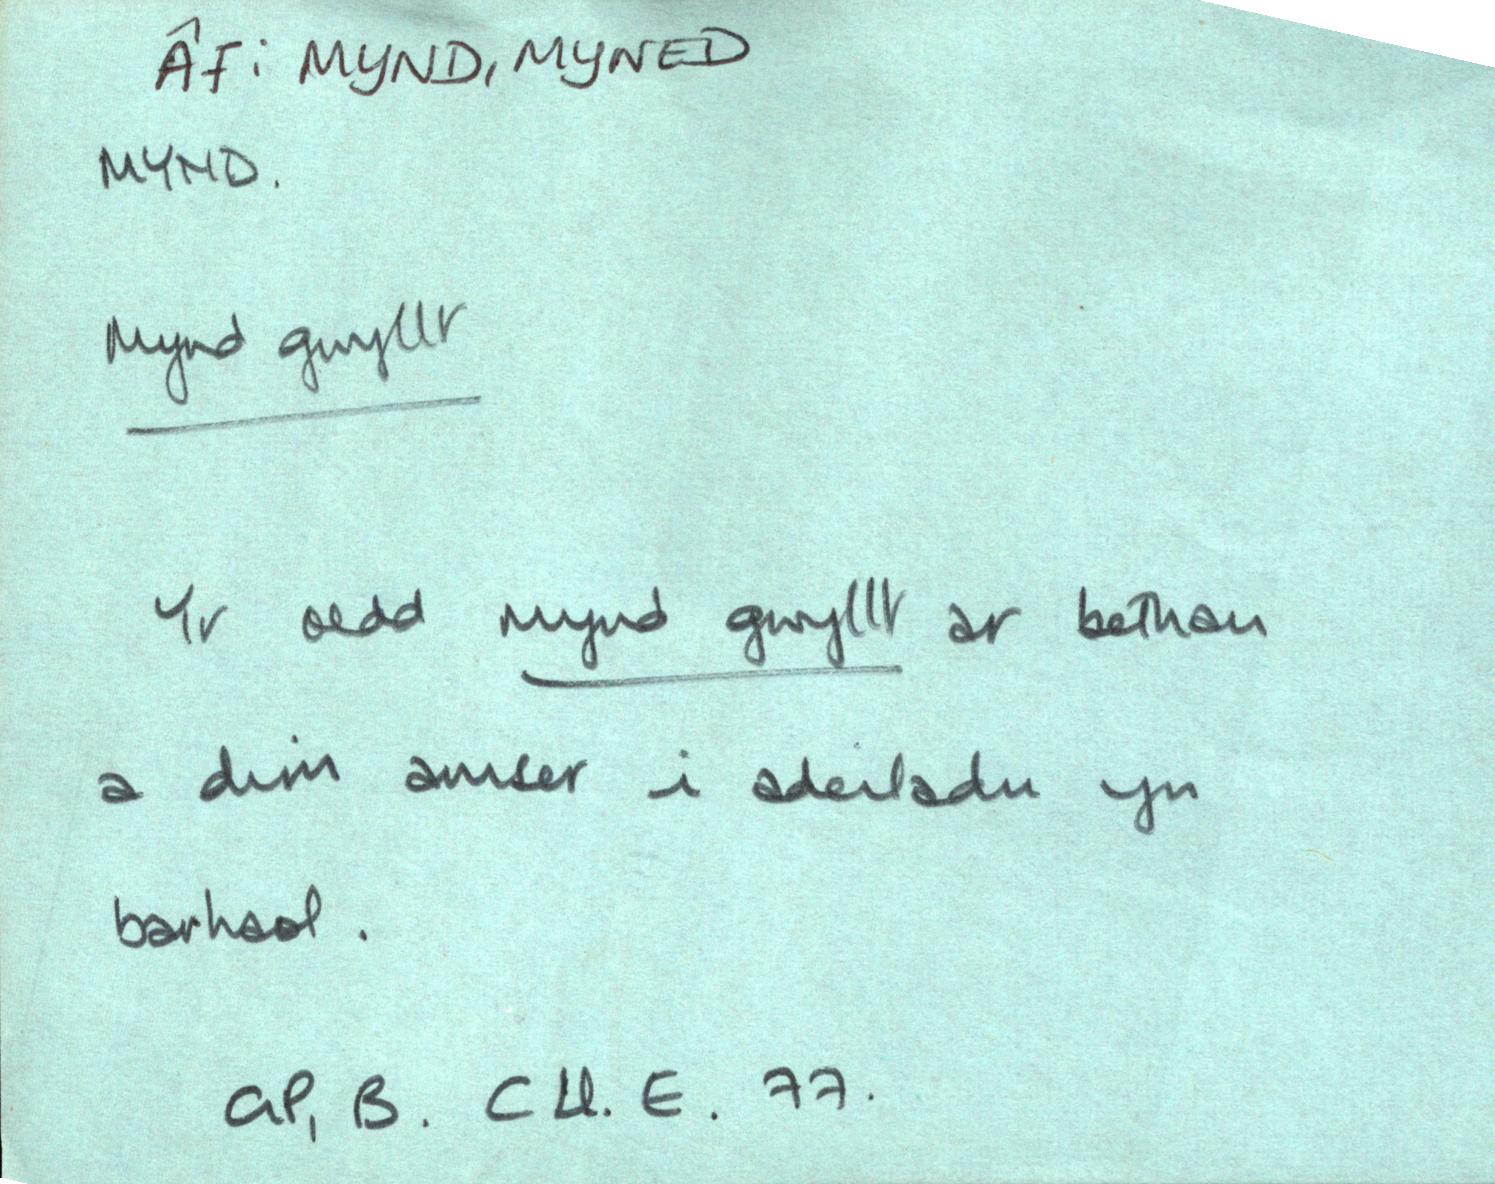 Âf: MYND, MYNED
MYND.
Mynd gwyllt
Yr oedd mynd gwyllt ar bethau
a dim amser i adeiladu yn
barhaol.
GP, B. C Ll. E. 77.